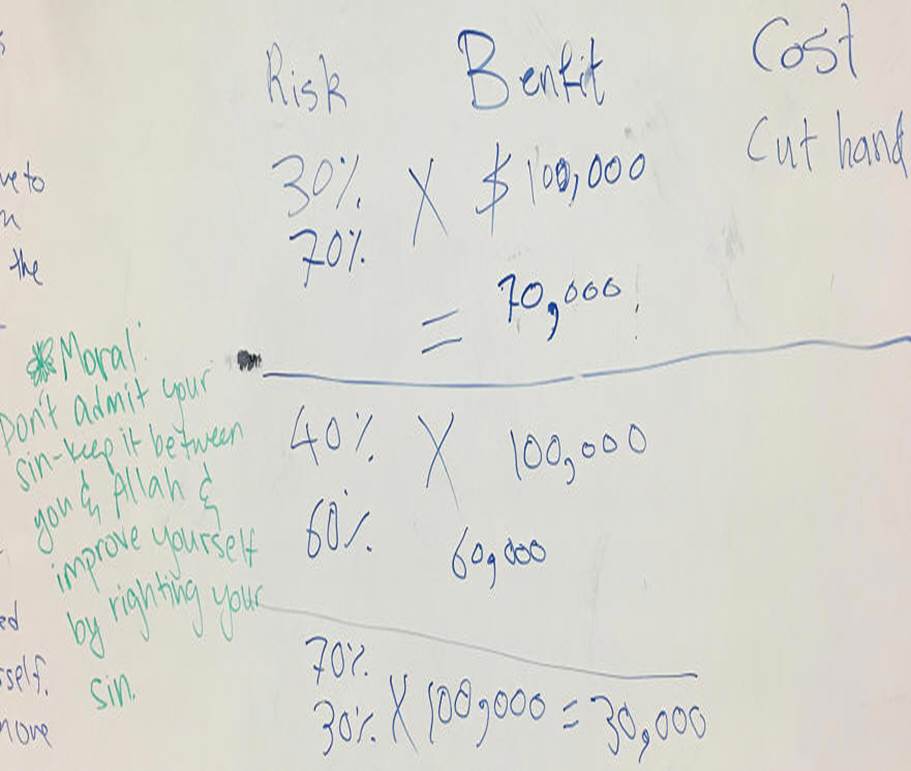 Risk Benfit Cost
30% X $100,000 Cut hand
70%
= 70,000
40% X 100,000
60% 60,000
70%
30% X 100,000 = 30,000
* Moral:
Don't admit your
sin-keep it between
you & Allah &
improve yourself
by righting your
sin.
the